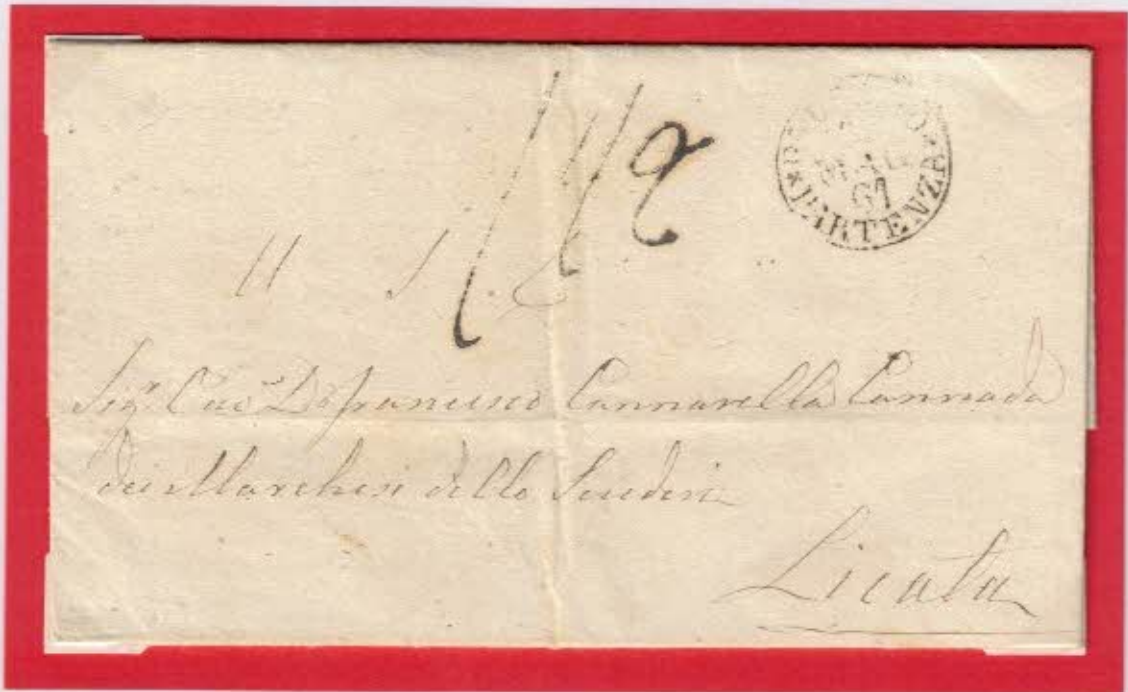 PARTENZA
61
1/2
Sig.r Cav. D. Francesco Cannarella Cannada
dei Marchesi dello Scuderi
Licata